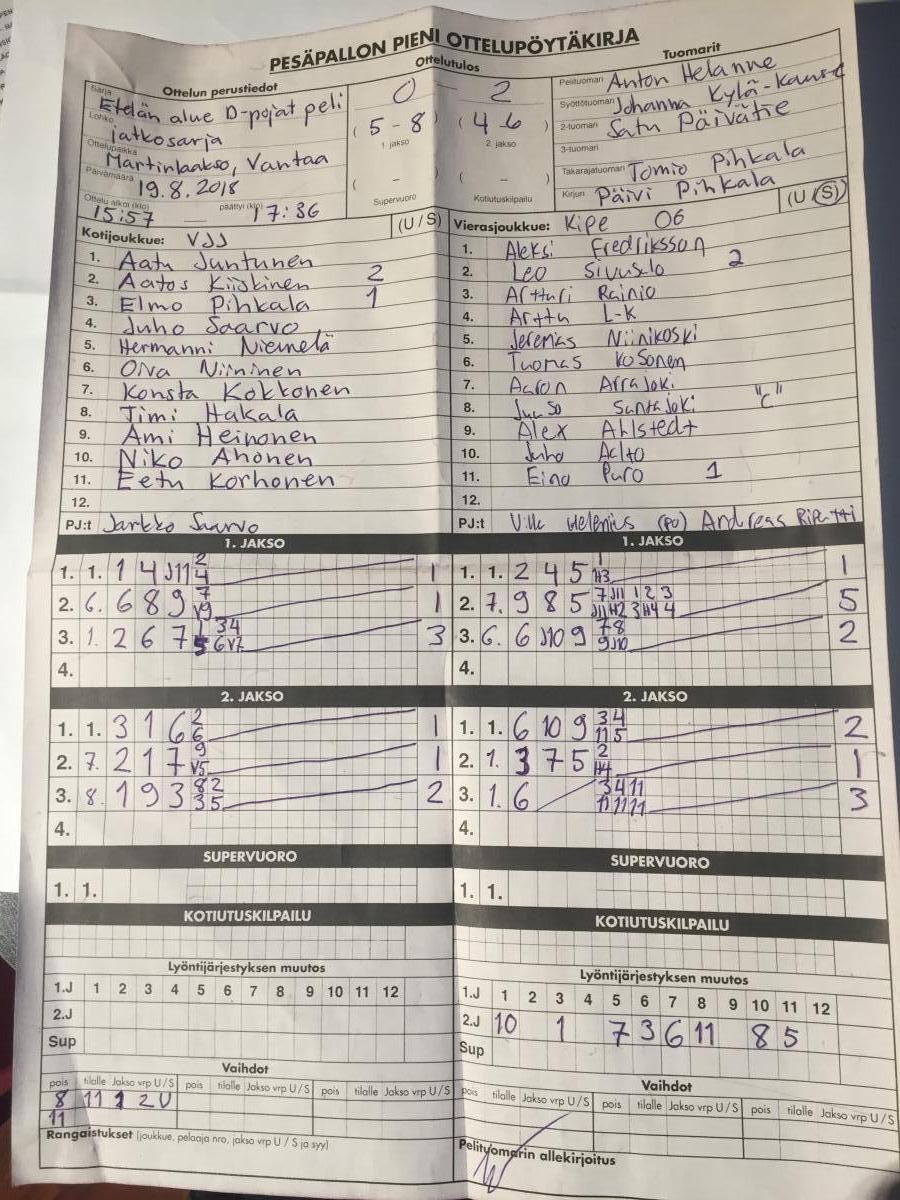 PESÄPALLON PIENI OTTELUPÖYTÄKIRJA
Ottelun perustiedot
Ottelutulos
Tuomarit
Sarja
Etelän alue D-pojat peli
Lohko
jatkosarja
Ottelupaikka
Martinlaakso, Vantaa
Päivämäärä
19.8.2018
Ottelu alkoi (klo) päättyi (klo)
15:57 — 17:36
0 - 2
(5-8) (4-6)
1 jakso 2 jakso
( - ) ( - )
Supervuoro Kotiutuskilpailu
Pelituomari Anton Helanne
Syöttötuomari Johanna Kylä-
2-tuomari Satu Päivätie
3-tuomari
Takarajatuomari Tomio Pihkala
Kirjuri Päivi Pihkala
Kotijoukkue: VJJ (U / S)
1. Aatu Juntunen
2. Aatos Kiiskinen 2
3. Elmo Pihkala 1
4. Juho Saarvo
5. Hermanni Niemelä
6. Oiva Niininen
7. Konsta Kokkonen
8. Timi Hakala
9. Ami Heinonen
10. Niko Ahonen
11. Eetu Korhonen
12.
PJ:t Jarkko Saarvo
Vierasjoukkue: Kipe 06 (U / S)
1. Aleksi Fredriksson
2. Leo Sivusalo 2
3. Artturi Rainio
4. Arttu L-K
5. Jeremias Niinikoski
6. Tuomas Kosonen
7. Aaron Arrajoki
8. Juuso Santajoki "C"
9. Alex Ahlstedt
10. Juho Aalto
11. Eino Puro 1
12.
PJ:t Ville Helenius (PJ) Andreas
1. JAKSO
1. 1. 1 4 J11 2 4 1
2. 6. 6 8 9 7 V9 1
3. 1. 2 6 7 1 3 4 5 6 V7 3
4.
1. JAKSO
1. 1. 2 4 5 1 H3 1
2. 7. 9 8 5 7 J11 1 2 3 J11 H2 3 H4 4 5
3. 6. 6 J10 9 7 8 9 J10 2
4.
2. JAKSO
1. 1. 3 1 6 2 6 1
2. 7. 2 1 7 9 V5 1
3. 8. 1 9 3 8 2 3 5 2
4.
2. JAKSO
1. 1. 6 10 9 3 4 11 5 2
2. 1. 3 7 5 2 H4 1
3. 1. 6 3 4 11 11 11 11 3
4.
SUPERVUORO
1. 1.
SUPERVUORO
1. 1.
KOTIUTUSKILPAILU
KOTIUTUSKILPAILU
Lyöntijärjestyksen muutos
1.J 1 2 3 4 5 6 7 8 9 10 11 12
2.J
Sup
Lyöntijärjestyksen muutos
1.J 1 2 3 4 5 6 7 8 9 10 11 12
2.J 10 1 7 3 6 11 8 5
Sup
Vaihdot
pois tilalle Jakso vrp U / S pois tilalle Jakso vrp U / S pois tilalle Jakso vrp U / S
8 11 1 2 U
11
Rangaistukset (joukkue, pelaaja nro, jakso vrp U / S ja syy)
Vaihdot
pois tilalle Jakso vrp U / S pois tilalle Jakso vrp U / S pois tilalle Jakso vrp U / S
Pelituomarin allekirjoitus